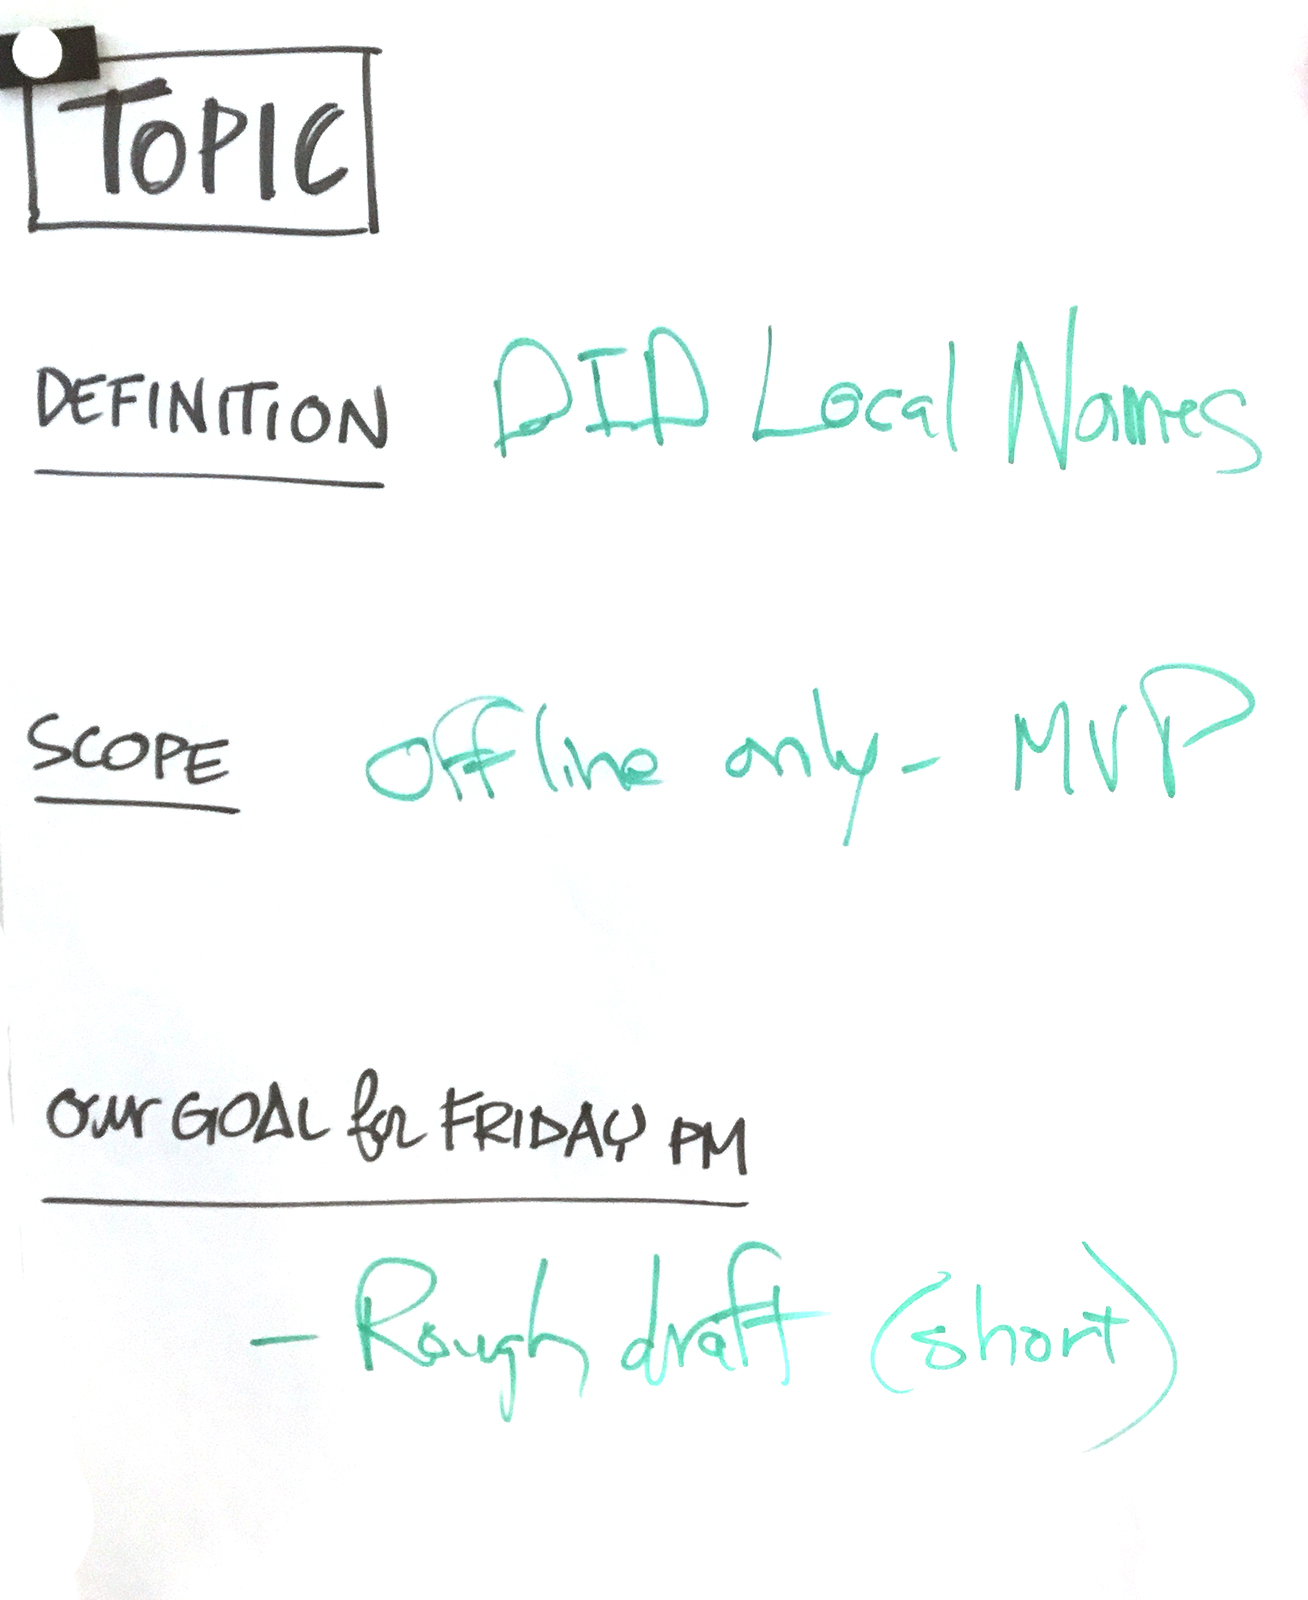 TOPIC
DEFINITION DID Local Names
SCOPE Offline only - MVP
Our GOAL for FRIDAY PM
- Rough draft (short)